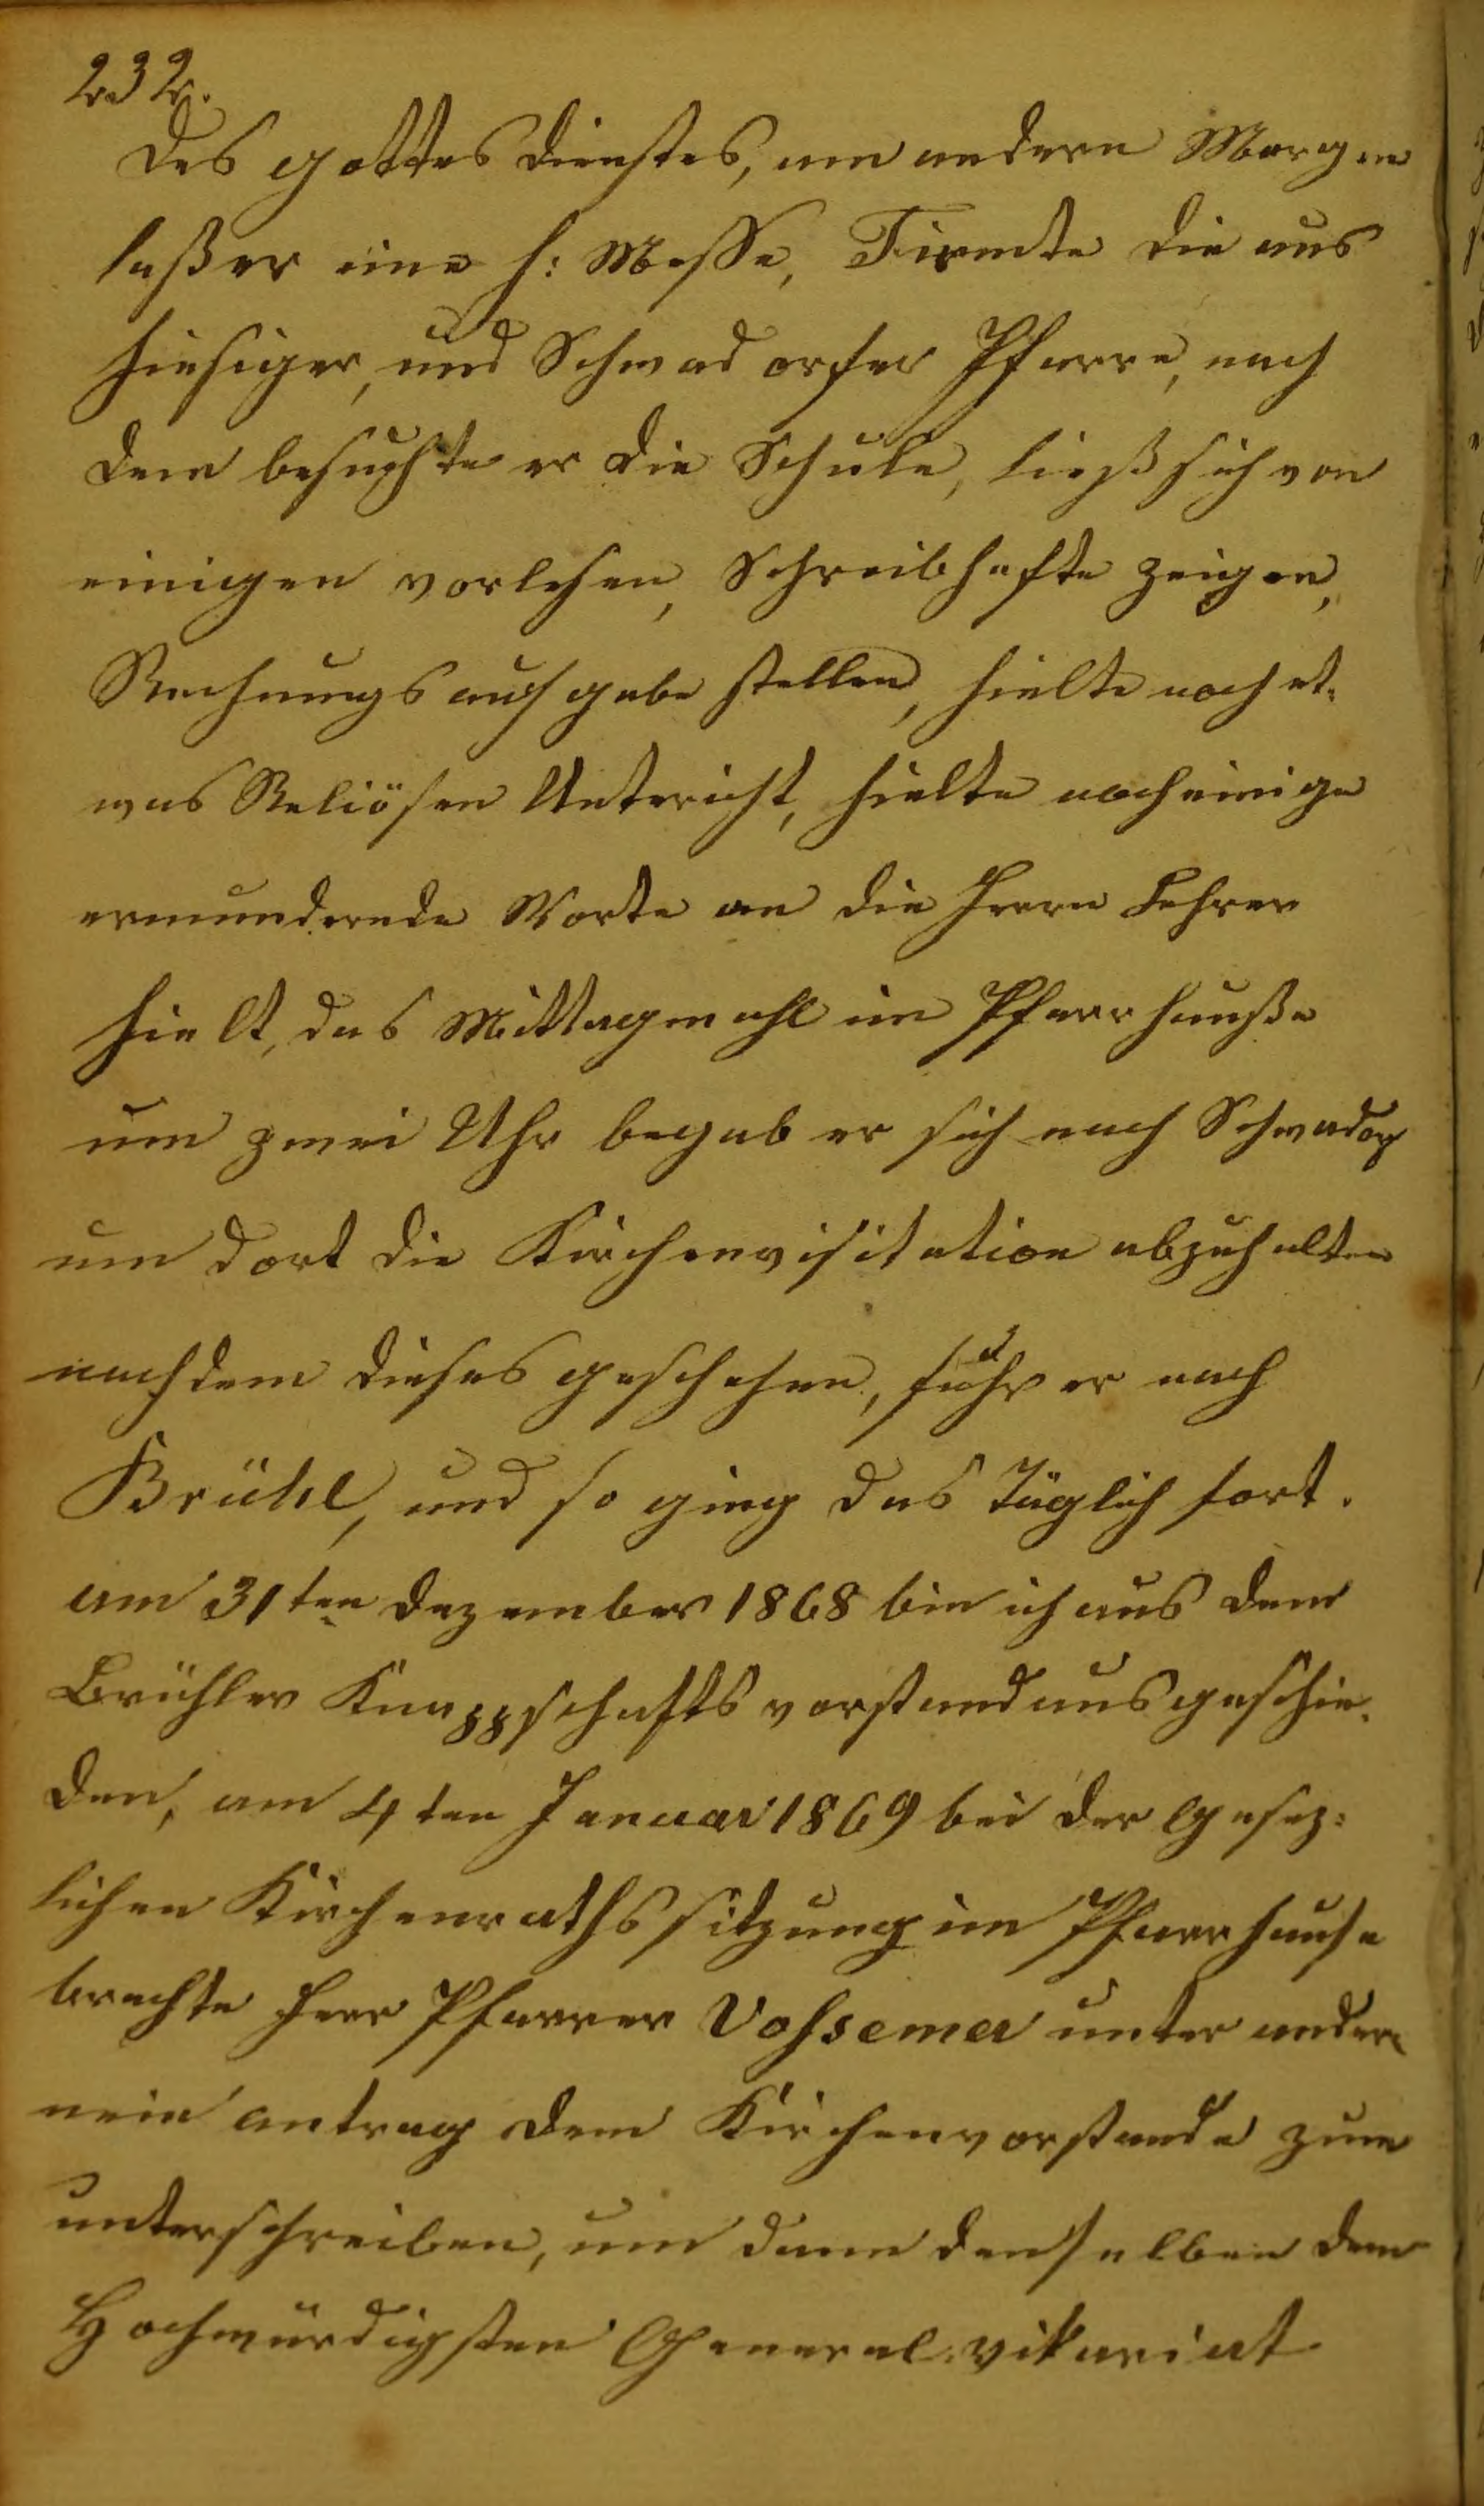 232.
des gottesdienstes, am andern Morgen
laßer eine h: Messe, Firmte die aus
hiesiger, und Schwadorfer Pfarre, nach
dem besuchte er die Schule, ließ sich von
einigen vorlesen, Schreibhefte zeigen,
Rechnungsaufgabe stellen, hielte noch et-
was Reliösen Untericht, hielte noch einige
ermundernde Worte an die Herrn Lehrer
hielt, das Mittagmahl im Pfarrhauße
um zwei Uhr begab er sich nach Schwadorf
um dort die Kirchenvisitation abzuhalten
nachdem dieses geschehen, fuhr er nach
Brühl, und so ging das täglich fort.
am 31ten dezember 1868 bin ich aus dem
Brühler Knappschaftsvorstand ausgeschie-
den, am 4ten Januar 1869 bei der gesez-
lichen Kirchenrathssitzung im Pfarrhause
brachte Herr Pfarrer Vossemer unter andern
nein antrag dem Kirchenvorstande zum
unterschreiben, um dann denselben dem
Hochwürdigsten General-vikariat